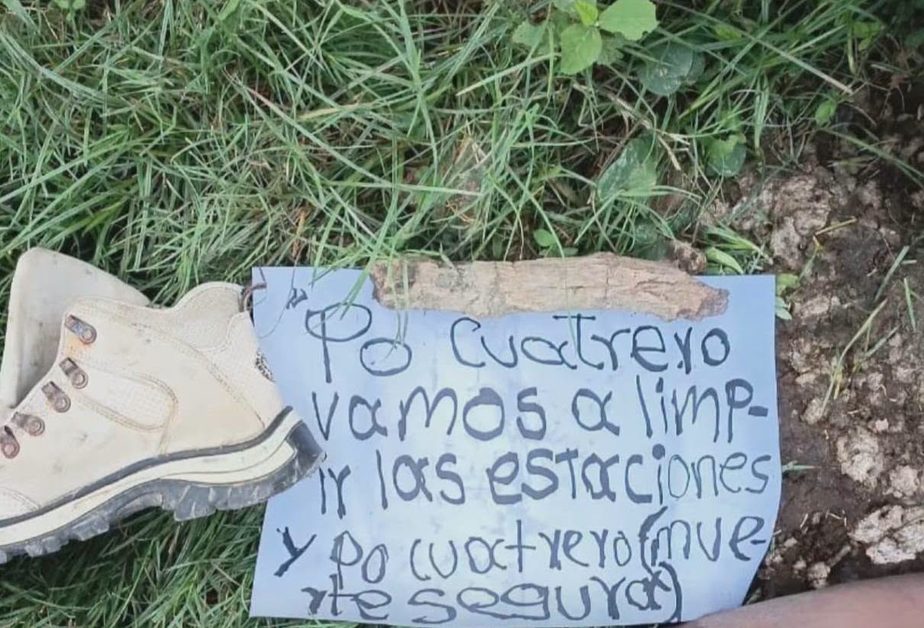 "Po cuatrero
vamos a limp-
ir las estaciones
y po cuatrero (mue-
rte segura)